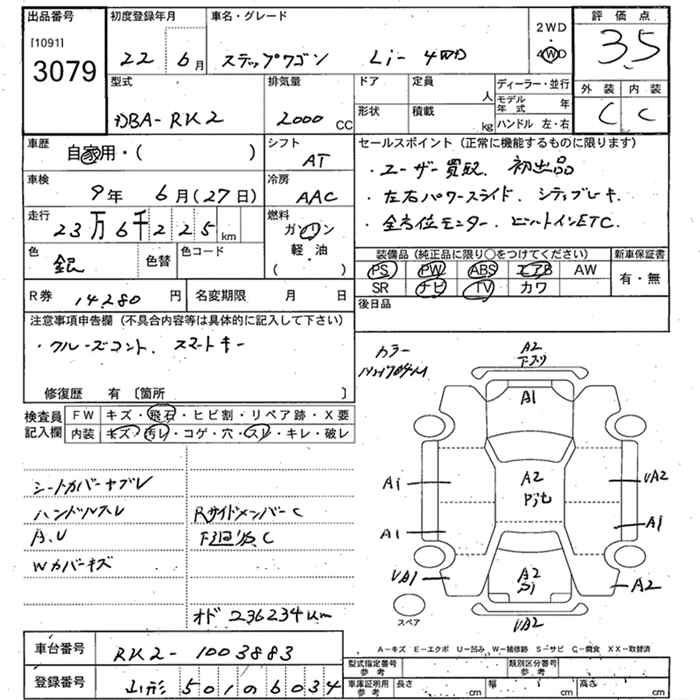 出品番号 初度登録年月 車名・グレード 2WD 評価点
[1091] 22年 6月 ステップワゴン Li- 4WD 4WD 3.5
3079
型式 排気量 ドア 定員 人 ディーラー・並行 外装 内装
DBA-RK2 2000 CC 形状 積載 kg モデル年式 年 C C
ハンドル 左・右
車歴 自家用・( ) シフト AT
セールスポイント(正常に機能するものに限ります)
・ユーザー買取、初出品
車検 9年 6月(27日) 冷房 AAC
・左右パワースライド、シティブレーキ
走行 23万6千225km 燃料 ガソリン
・全方位モニター、ビルトインETC.
色 銀 色替 色コード 軽・油 ( )
装備品(純正品に限り○をつけてください) 新車保証書
PS PW ABS エアB AW 有・無
SR ナビ TV カワ
R券 14280円 名変期限 月 日
後日品
注意事項申告欄(不具合内容等は具体的に記入して下さい)
・クルーズコント、スマートキー
修復歴 有 〔箇所 〕
カラー
NH704M
検査員 FW キズ・飛石・ヒビ割・リペア跡・X要
記入欄 内装 キズ・汚レ・コゲ・穴・スレ・キレ・破レ
シートカバーヤブレ
ハンドルスレ Rサイドメンバー C
A.U 下廻り C
Wカバーキズ
オド 236234km
A2
A1
A1 A2 UA2
A1 A1
UA1 A2 A2
UA2
スペア
A-キズ E-エクボ U-凹み W-補修跡 S-サビ C-腐食 XX-取替済
車台番号 RK2-1003883
登録番号 山形 501 の 6034
型式指定番号 参考 類別区分番号 参考
車庫証明用 参考 長さ cm 幅 cm 高さ cm